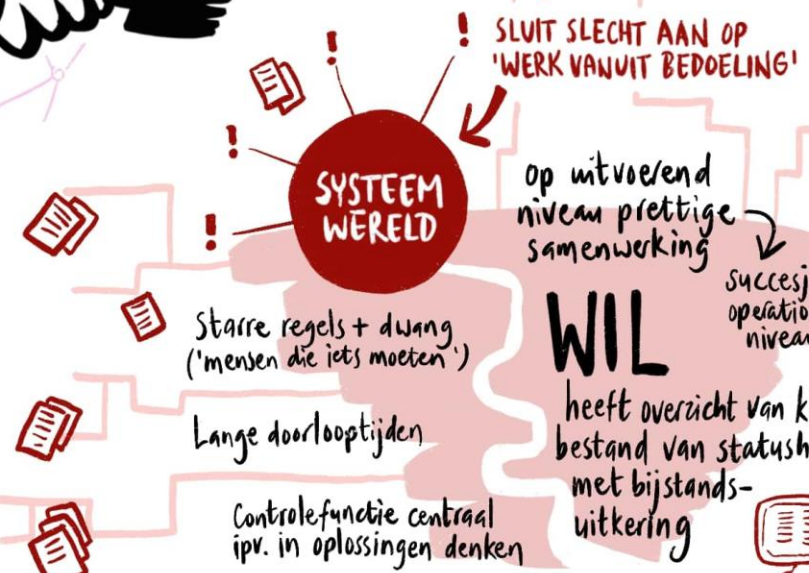 SLUIT SLECHT AAN OP
'WERK VANUIT BEDOELING'
!
!
!
!
SYSTEEM
WERELD
op uitvoerend
niveau prettige
samenwerking
succesj
operatio
niveau
Starre regels + dwang
('mensen die iets moeten')
WIL
Lange doorlooptijden
heeft overzicht van k
bestand van statush
met bijstands-
uitkering
Controlefunctie centraal
ipv. in oplossingen denken